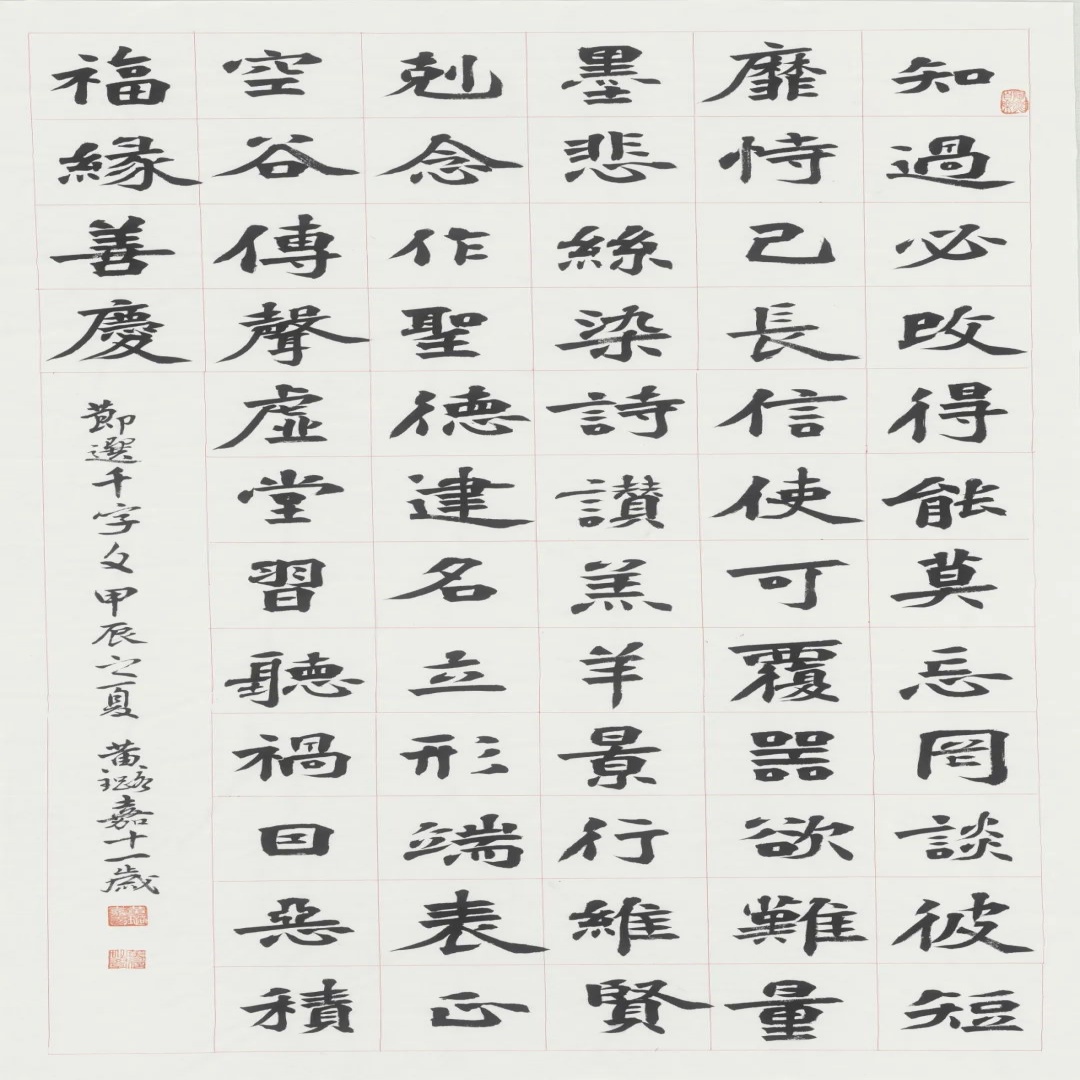 知過必改得能莫忘罔談彼短
靡恃己長信使可覆器欲難量
墨悲絲染詩讃羔羊景行維賢
剋念作聖德建名立形端表正
空谷傳聲虛堂習聽禍因惡積
福緣善慶
節選千字文甲辰之夏 黄璐嘉十一歲